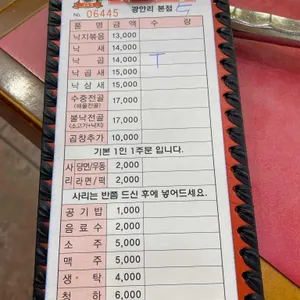 광안리 본점 E
No. 06445
품 명 금 액 수 량
낙지볶음 13,000
낙 새 14,000
낙 곱 14,000 T
낙 곱 새 15,000
낙 삼 새 15,000
수중전골 17,000
(해물전골)
불낙전골 17,000
(소고기+낙지)
곱창추가 10,000
기본 1인 1주문 입니다.
사리 당면/우동 2,000
라면/떡 2,000
사리는 반쯤 드신 후에 넣어드세요.
공 기 밥 1,000
음 료 수 2,000
소 주 5,000
맥 주 5,000
생 탁 4,000
청 하 6,000